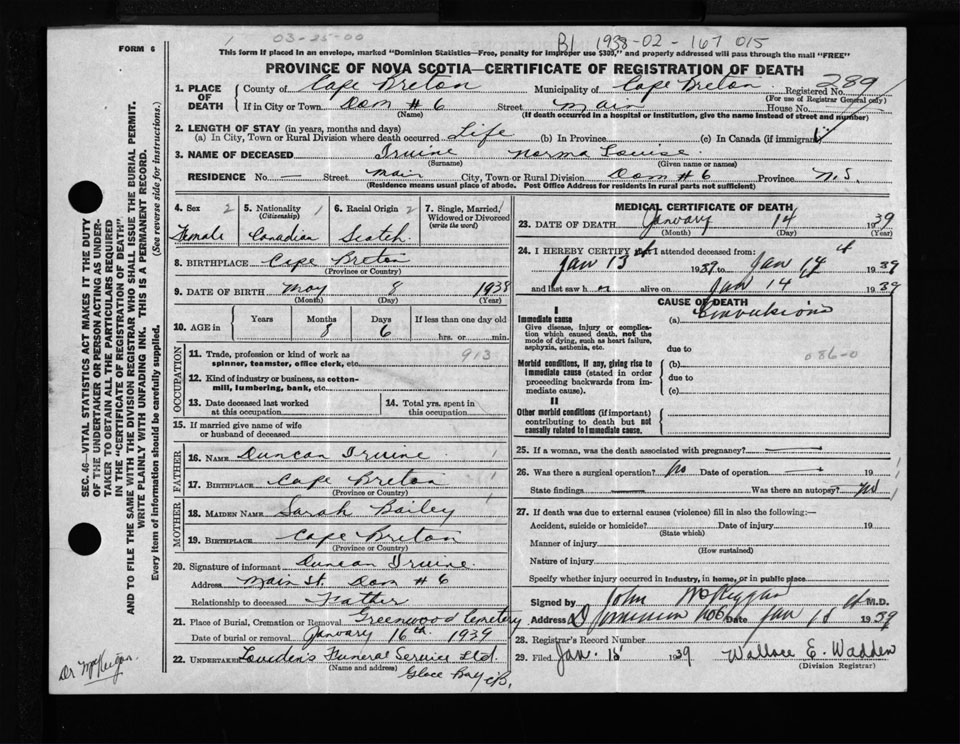 03-25-00
B1 1938-02-167 015
FORM 6
This form if placed in an envelope, marked "Dominion Statistics—Free, penalty for improper use $300," and properly addressed will pass through the mail "FREE"
PROVINCE OF NOVA SCOTIA—CERTIFICATE OF REGISTRATION OF DEATH
1. PLACE OF DEATH County of Cape Breton Municipality of Cape Breton Registered No. 289
(For use of Registrar General only)
If in City or Town Dom # 6 Street Main House No.
(Name) (If death occurred in a hospital or institution, give the name instead of street and number)
2. LENGTH OF STAY (in years, months and days)
(a) In City, Town or Rural Division where death occurred Life (b) In Province (c) In Canada (if immigrant)
3. NAME OF DECEASED Irvine Norma Louise
(Surname) (Given name or names)
RESIDENCE No. — Street Main City, Town or Rural Division Dom # 6 Province N.S.
(Residence means usual place of abode. Post Office Address for residents in rural parts not sufficient)
4. Sex 2 Female
5. Nationality (Citizenship) 1 Canadian
6. Racial Origin 2 Scotch
7. Single, Married, Widowed or Divorced (write the word) 1
8. BIRTHPLACE Cape Breton
(Province or Country)
9. DATE OF BIRTH May 8 1938
(Month) (Day) (Year)
10. AGE in Years Months 8 Days 6 If less than one day old hrs. or min.
OCCUPATION
11. Trade, profession or kind of work as spinner, teamster, office clerk, etc. 913
12. Kind of industry or business, as cotton-mill, lumbering, bank, etc.
13. Date deceased last worked at this occupation
14. Total yrs. spent in this occupation
15. If married give name of wife or husband of deceased
FATHER
16. NAME Duncan Irvine
17. BIRTHPLACE Cape Breton
(Province or Country)
MOTHER
18. MAIDEN NAME Sarah Bailey
19. BIRTHPLACE Cape Breton
(Province or Country)
20. Signature of informant Duncan Irvine
Address Main St. Dom # 6
Relationship to deceased Father
21. Place of Burial, Cremation or Removal Greenwood Cemetery
Date of burial or removal January 16th, 1939
22. UNDERTAKER Funeral Service Ltd.
(Name and address)
Glace Bay C.B.
MEDICAL CERTIFICATE OF DEATH
23. DATE OF DEATH January 14 1939
(Month) (Day) (Year)
24. I HEREBY CERTIFY that I attended deceased from
Jan 13 1939 to Jan 14 1939
and last saw h er alive on Jan 14 1939
CAUSE OF DEATH
I
Immediate cause (a) Convulsions
Give disease, injury or complication which caused death, not the mode of dying, such as heart failure, asphyxia, asthenia, etc.
due to
Morbid conditions, if any, giving rise to immediate cause (stated in order proceeding backwards from immediate cause).
(b) 086-0
due to
(c)
II
Other morbid conditions (if important) contributing to death but not causally related to immediate cause.
25. If a woman, was the death associated with pregnancy?
26. Was there a surgical operation? No Date of operation — 19
State findings — Was there an autopsy? No
27. If death was due to external causes (violence) fill in also the following:—
Accident, suicide or homicide? Date of injury 19
(State which)
Manner of injury
(How sustained)
Nature of injury
Specify whether injury occurred in industry, in home, or in public place
Signed by John McKiggan M.D.
Address Dominion No 6 Date Jan 1939
28. Registrar's Record Number
29. Filed Jan. 15 1939 Wallace E. Wadden
(Division Registrar)
SEC. 46—VITAL STATISTICS ACT MAKES IT THE DUTY
OF THE UNDERTAKER OR PERSON ACTING AS UNDER-
TAKER TO OBTAIN ALL THE PARTICULARS REQUIRED
IN THE "CERTIFICATE OF REGISTRATION OF DEATH"
AND TO FILE THE SAME WITH THE DIVISION REGISTRAR WHO SHALL ISSUE THE BURIAL PERMIT.
WRITE PLAINLY WITH UNFADING INK. THIS IS A PERMANENT RECORD.
Every item of information should be carefully supplied. (See reverse side for instructions.)
Dr